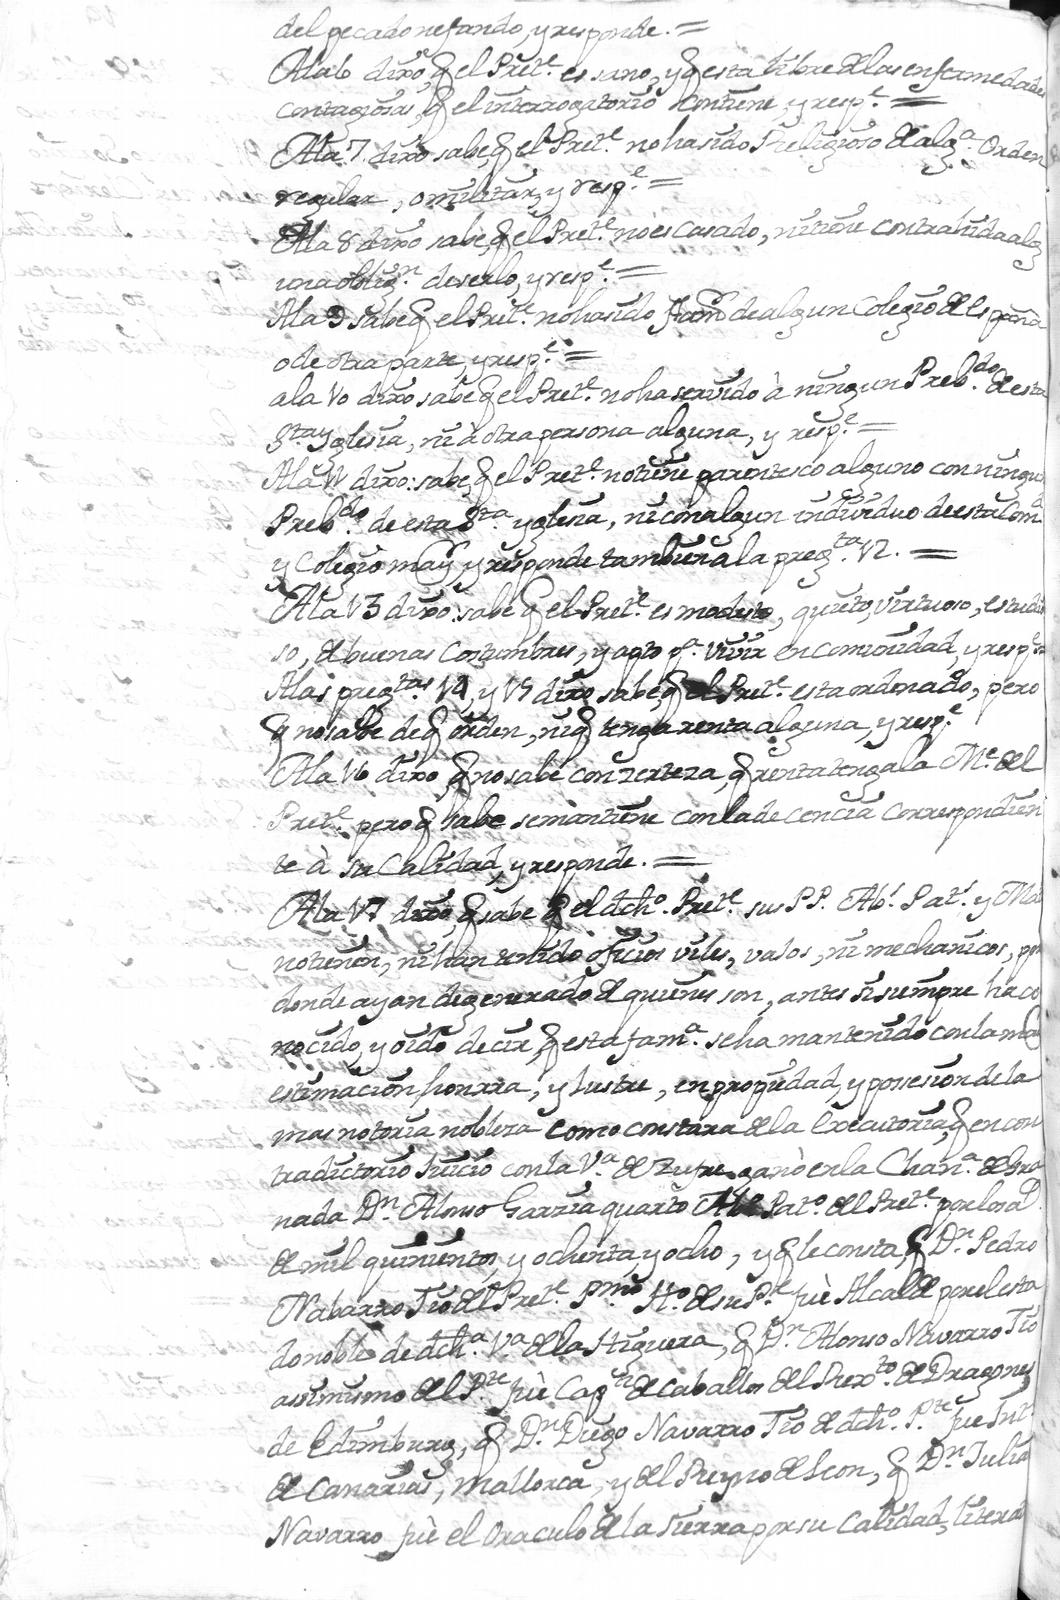 del pecado nefando, y responde. =
Ala 6 dixo, q̃ el Pret.te es sano, y q̃ esta libre de las enfermedades
contagiosas, q̃ el interrogatorio contiene, y resp.e =
Ala 7. dixo sabe, q̃ el Pret.te no ha sido Religioso de alg.a Orden
regular, o militar, y resp.e =
Ala 8 dixo sabe, q̃ el Pret.te no es casado, ni tiene contrahida alg
una oblig.n de serlo, y resp.e =
Ala 9 sabe q̃ el Pret.te no ha sido de algun Colegio de españa
o de otra parte, y resp.e =
ala 10 dixo sabe q̃ el Pret.te no ha servido à ningun Preb.do de esta
S.ta Yglesia, ni à otra persona alguna, y resp.e =
Ala 11 dixo: sabe, q̃ el Pret.te no tiene parentesco alguno con ningun
Preb.do de esta S.ta Yglesia, ni con algun individuo de esta Com.d
y Colegio may.r y responde tambien a la preg.ta 12. =
Ala 13 dixo: sabe q̃ el Pret.te es modesto, quieto, virtuoso, estudio
so, de buenas Costumbres, y apto p.a vivir en comunidad, y resp.e
Alas preg.tas 14, y 15 dixo sabe, q̃ el Pret.te esta ordenado, pero
q̃ no sabe de q̃ orden, ni q̃ tenga renta alguna, y resp.e
Ala 16 dixo, q̃ no sabe con zerteza, q̃ renta tenga la M.e del
Pret.te pero q̃ sabe se mantiene con la decencia correspondien
te à su Calidad, y responde. =
Ala 17 dixo, q̃ sabe q̃ el dch.o Pret.te sus PP. Ab.s Pat.s y Mat
no tienen, ni han tenido oficios viles, vajos, ni mechanicos, por
donde ayan degenerado de quienes son, antes si siempre ha co
nocido, y oido decir, q̃ esta fam.a se ha mantenido con la mas
estimacion honrra, y lustre, en propiedad, y possesion de la
mas notoria nobleza como constara de la Executoria, q̃ en con
tradictorio Juicio con la V.a de Zufre ganò en la Chan.a de Gra
nada D.n Alonso Garzia quarto Ab.o Pat.o del Pret.te por el año
de mil quinientos, y ochenta, y ocho, y q̃ le consta, q̃ D.n Pedro
Nabarro Tio del Pret.te P.mo H.o de su P.e fuè Alcalde por el esta
do noble de dch.a V.a de la Higuera, q̃ D.n Alonso Navarro Tio
assimismo del P.te fuè Cap.n de caballos del Rex.to de Dragones
de Edimburg, q̃ D.n Diego Navarro Tio de dch.o P.te fue Int.
de Canarias, Mallorca, y del Reyno de Leon, q̃ D.n Julian
Navarro fuè el Oraculo de la Sierra por su Calidad, litera